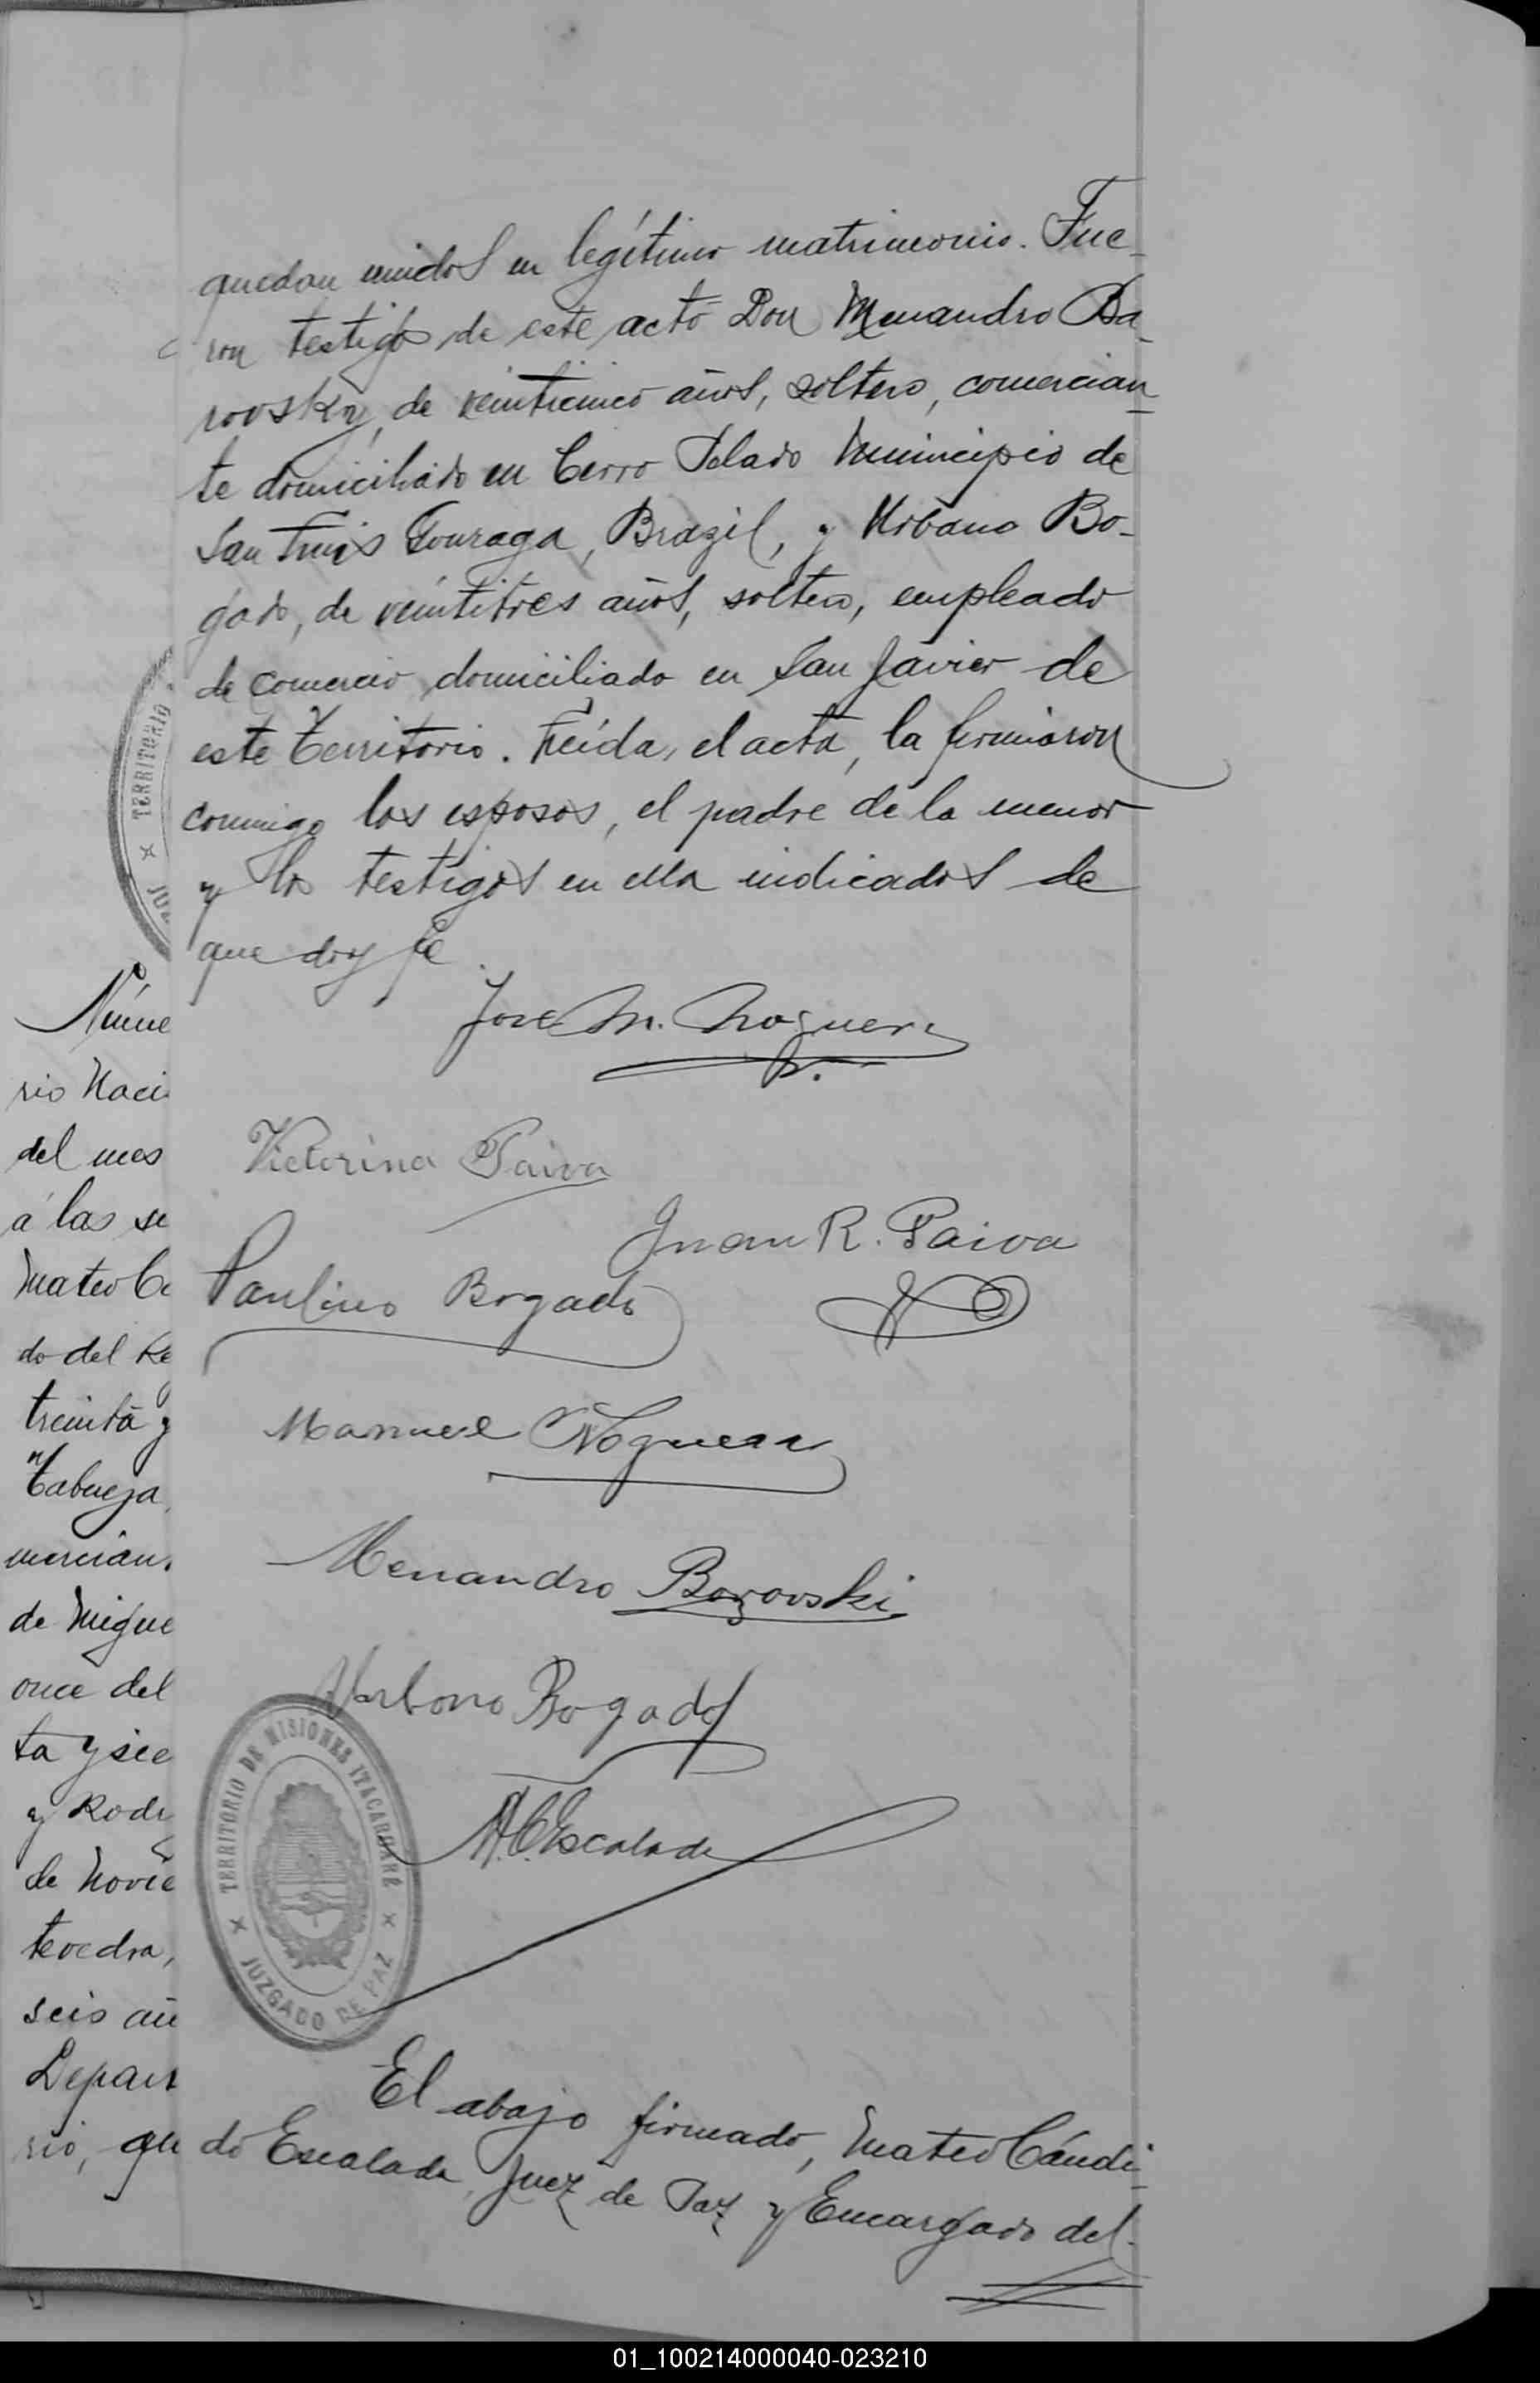 quedan unidos en legítimo matrimonio. Fue-
ron testigos de este acto Don Menandro Ba-
rovsky, de veinticinco años, soltero, comercian-
te domiciliado en Cerro Pelado Municipio de
San Luis Gonzaga, Brazil, y Urbano Bo-
gado, de veintitres años, soltero, empleado
de comercio domiciliado en San Javier de
este Territorio. Leída, el acta, la firmaron
conmigo los esposos, el padre de la menor
y los testigos en ella indicados de
que doy fe.
Jose M. Noguera
Victorina Paiva
Juan R. Paiva
Paulino Bogado
Manuel Noguera
Menandro Borovski
Urbano Bogado
M.C.Escalada
TERRITORIO DE MISIONES ITACARUARÉ
JUZGADO DE PAZ
El abajo firmado, Mateo Cándi-
do Escalada, Juez de Paz y Encargado del
TERRITORIO
JU
Núme
rio Naci
del mes
á las se
Mateo C
do del Re
treinta y
Tabueja,
mercian
de Migue
once del
ta y sie
y Rodr
de Novie
tevedra,
seis añ
Depart
rio, qu
01_100214000040-023210